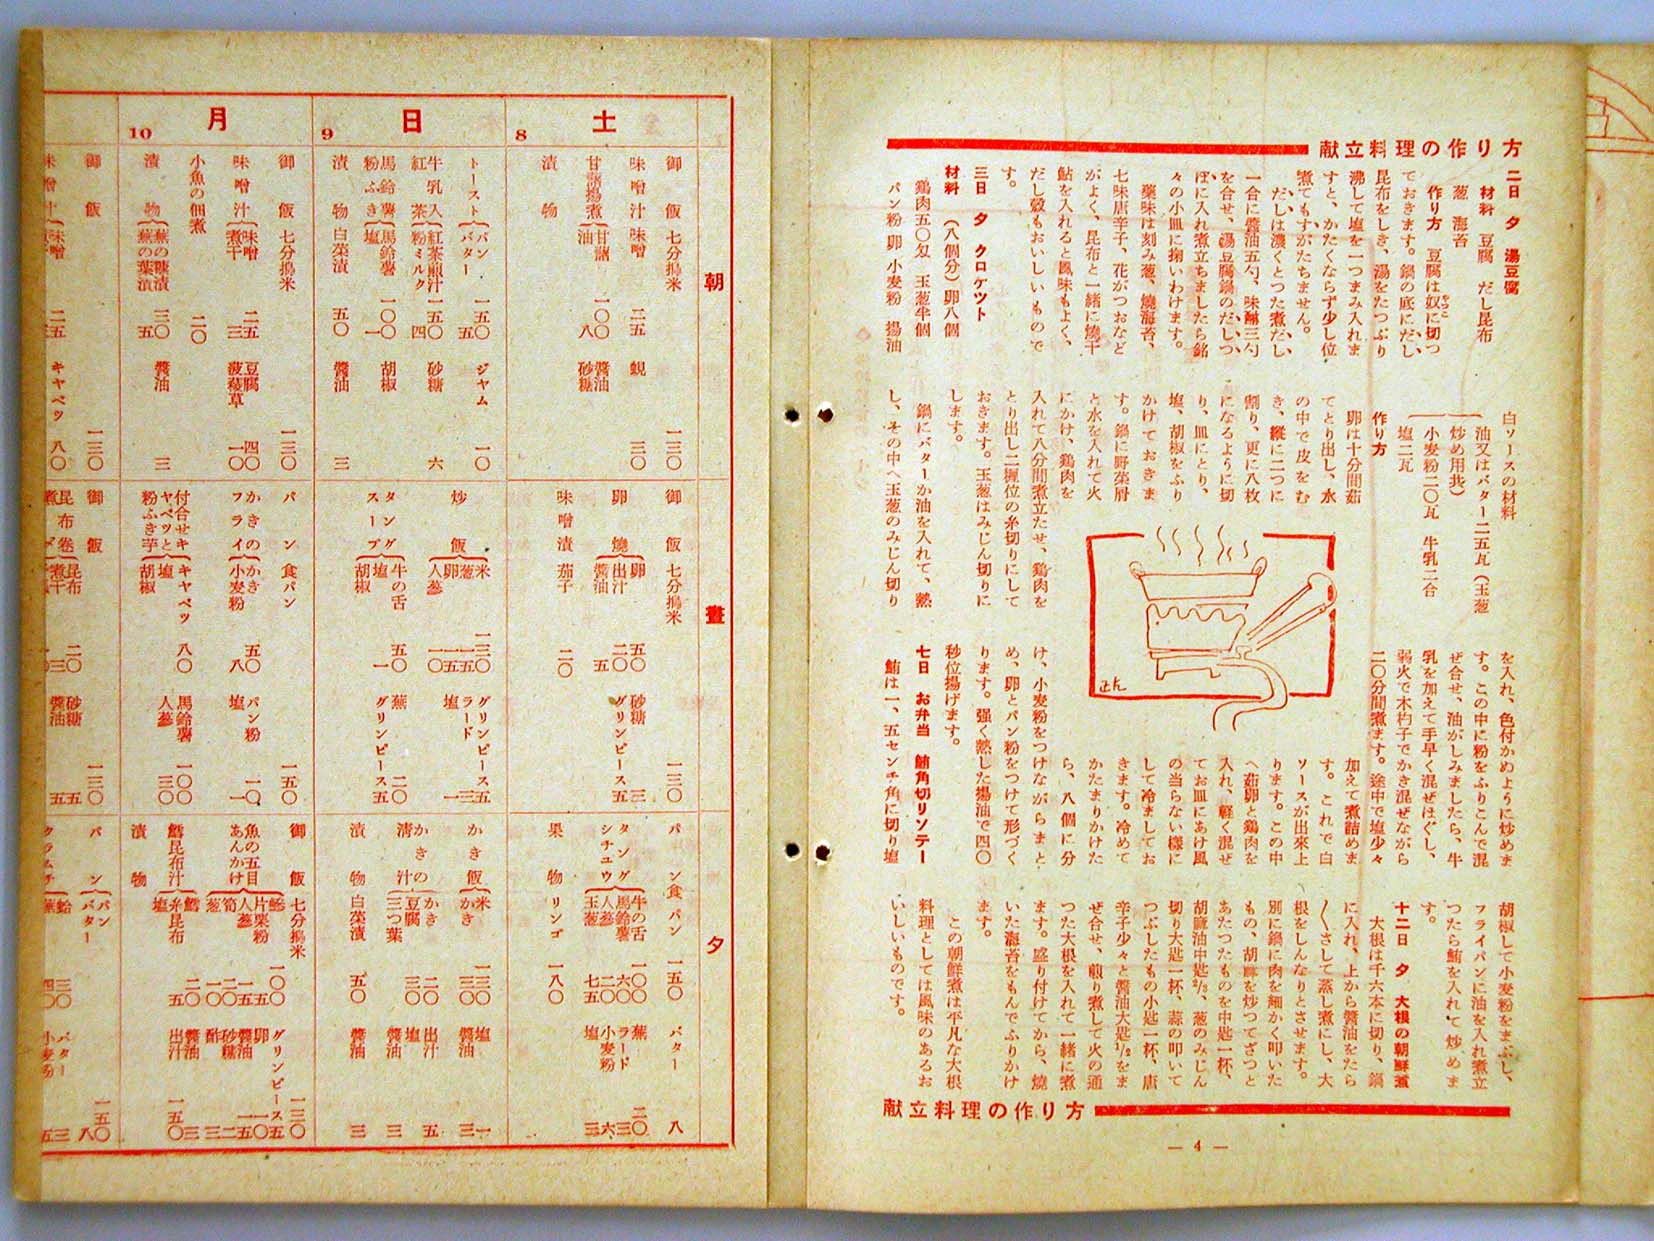 献立料理の作り方
二日 夕 湯豆腐
材料 豆腐 だし昆布
葱 海苔
作り方 豆腐は奴に切つ
やつこ
ておきます。鍋の底にだし
昆布をしき、湯をたつぷり
沸して塩を一つまみ入れま
すと、かたくならず少し位
煮てもすがたちません。
だしは濃くとつた煮だし
一合に醬油五勺、味醂三勺
を合せ、湯豆腐鍋のだしつ
ぼに入れ煮立ちましたら銘
々の小皿に掬いわけます。
薬味は刻み葱、焼海苔、
七味唐辛子、花がつおなど
がよく、昆布と一緒に焼干
鮎を入れると風味もよく、
だし殻もおいしいもので
す。
三日 夕 クロケツト
材料 (八個分)卵八個
鶏肉五〇匁 玉葱半個
パン粉 卵 小麦粉 揚油
白ソースの材料
油又はバター二五瓦(玉葱
炒め用共)
小麦粉二〇瓦 牛乳二合
塩二瓦
作り方
卵は十分間茹
てとり出し、水
の中で皮をむ
き、縦に二つに
割り、更に八枚
になるように切
り、皿にとり、
塩、胡椒をふり
かけておきま
す。鍋に野菜屑
と水を入れて火
にかけ、鶏肉を
入れて八分間煮立たせ、鶏肉を
とり出し二糎位の糸切りにして
おきます。玉葱はみじん切りに
します。
鍋にバターか油を入れて、熱
し、その中へ玉葱のみじん切り
を入れ、色付かぬように炒めま
す。この中に粉をふりこんで混
ぜ合せ、油がしみましたら、牛
乳を加えて手早く混ぜほぐし、
弱火で木杓子でかき混ぜながら
二〇分間煮ます。途中で塩少々
加えて煮詰めま
す。これで白
ソースが出来上
ります。この中
へ茹卵と鶏肉を
入れ、軽く混ぜ
てお皿にあけ風
の当らない様に
して冷ましてお
きます。冷めて
かたまりかけた
ら、八個に分
け、小麦粉をつけながらまと
め、卵とパン粉をつけて形づく
ります。强く熱した揚油で四〇
秒位揚げます。
七日 お弁当 鮪角切りソテー
鮪は一、五センチ角に切り塩
胡椒して小麦粉をまぶし、
フライパンに油を入れ煮立
つたら鮪を入れて炒めま
す。
十二日 夕 大根の朝鮮煮
大根は千六本に切り、鍋
に入れ、上から醬油をたら
〱さして蒸し煮にし、大
根をしんなりとさせます。
別に鍋に肉を細かく叩いた
もの、胡麻を炒つてざつと
あたつたものを中匙一杯、
胡麻油中匙⅔、葱のみじん
切り大匙一杯、蒜の叩いて
つぶしたもの小匙一杯、唐
辛子少々と醬油大匙½をま
ぜ合せ、煎り煮して火の通
つた大根を入れて一緒に煮
ます。盛り付けてから、焼
いた海苔をもんでふりかけ
ます。
この朝鮮煮は平凡な大根
料理としては風味のあるお
いしいものです。
献立料理の作り方
― 4 ―
朝
晝
夕
土
8
御飯 七分搗米 一三〇
味噌汁 味噌 二五 蜆 三〇
甘藷揚煮 甘藷 一〇〇 醬油
油 八 砂糖
漬物
御飯 七分搗米 一三〇
卵燒 卵 五〇 砂糖 三
出汁 二〇 グリンピース 五
醬油 五
味噌漬 茄子 二〇
パン 食パン 一五〇 バター 八
タングシチユウ 牛の舌 一〇〇 蕪 二〇
馬鈴薯 六〇 ラード 三
人蔘 二〇 小麦粉 六
玉葱 七五 塩 三
果物 リンゴ 一八〇
日
9
トースト パン 一五〇 ジヤム 一〇
バター 五
牛乳入紅茶 紅茶煎汁 一五〇 砂糖 六
粉ミルク 四
馬鈴薯粉ふき 馬鈴薯 一〇〇 胡椒
塩 一
漬物 白菜漬 五〇 醬油 三
炒飯 米 一三〇 グリンピース 五
葱 一五 ラード 一三
卵 一五 塩 一
人蔘 一〇
タングスープ 牛の舌 五〇 蕪 二〇
塩 一 グリンピース 五
胡椒
かき飯 米 一三〇 塩 一
かき 三〇 醬油 三
かきの清汁 かき 二〇 出汁
豆腐 三〇 塩 五
三つ葉 醬油 三
漬物 白菜漬 五〇 醬油 三
月
10
御飯 七分搗米 一三〇
味噌汁 味噌 二五 豆腐 四〇
煮干 三 菠薐草 一〇
小魚の佃煮 二〇
漬物 蕪の糠漬 三〇 醬油 三
蕪の葉漬 五
パン 食パン 一五〇
かきのフライ かき 五〇 パン粉 一〇
小麦粉 八 塩 一
付合せキヤベツと粉ふき芋 キヤベツ 八〇 馬鈴薯 一〇〇
塩 人蔘 三〇
胡椒
御飯 七分搗米 一三〇
魚の五目あんかけ 一〇〇 グリンピース 五
片栗粉 五 卵 一〇
人蔘 一五 醬油 一五
筍 二〇 砂糖 二
葱 一〇 酢 三
鱈昆布汁 鱈 二〇 醬油 三
弁昆布 五 出汁 一五〇
塩
漬物
御飯 一三〇
味噌汁 味噌 二五 キヤベツ 八〇
御飯 一三〇
昆布卷 昆布 二〇 砂糖 五
煮干 三 醬油 五
パン パン 一五〇
バター 八
蛤 三〇 バター 三
小麦粉 五